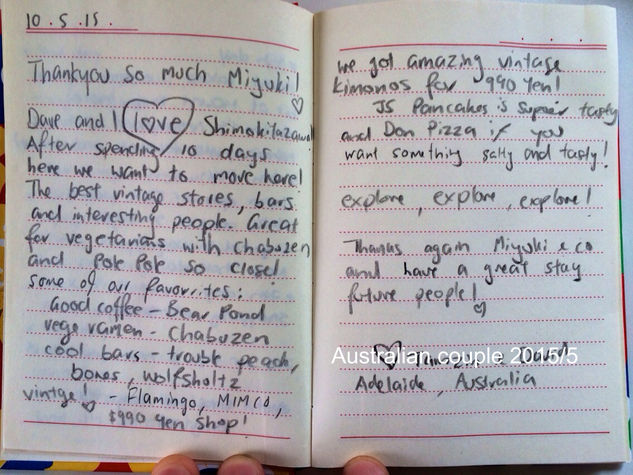 10.5.15.
Thankyou so much Miyuki!
Dave and I love Shimokitazawa
After spending 10 days
here we want to move here!
The best vintage stores, bars
and interesting people. Great
for vegetarians with Chabuzen
and Pole Pole so close!
some of our favourites:
Good coffee - Bear Pond
vege ramen - Chabuzen
cool bars - trouble peach,
bones, wolfsholtz
vintge! - Flamingo, MIMCO,
$990 yen shop!
we got amazing vintage
kimonos for 990 yen!
JS Pancakes is super tasty
and Don Pizza if you
want something salty and tasty!
explore, explore, explore!
Thanks again Miyuki & co
and have a great stay
future people!
Australian couple 2015/5
Adelaide, Australia